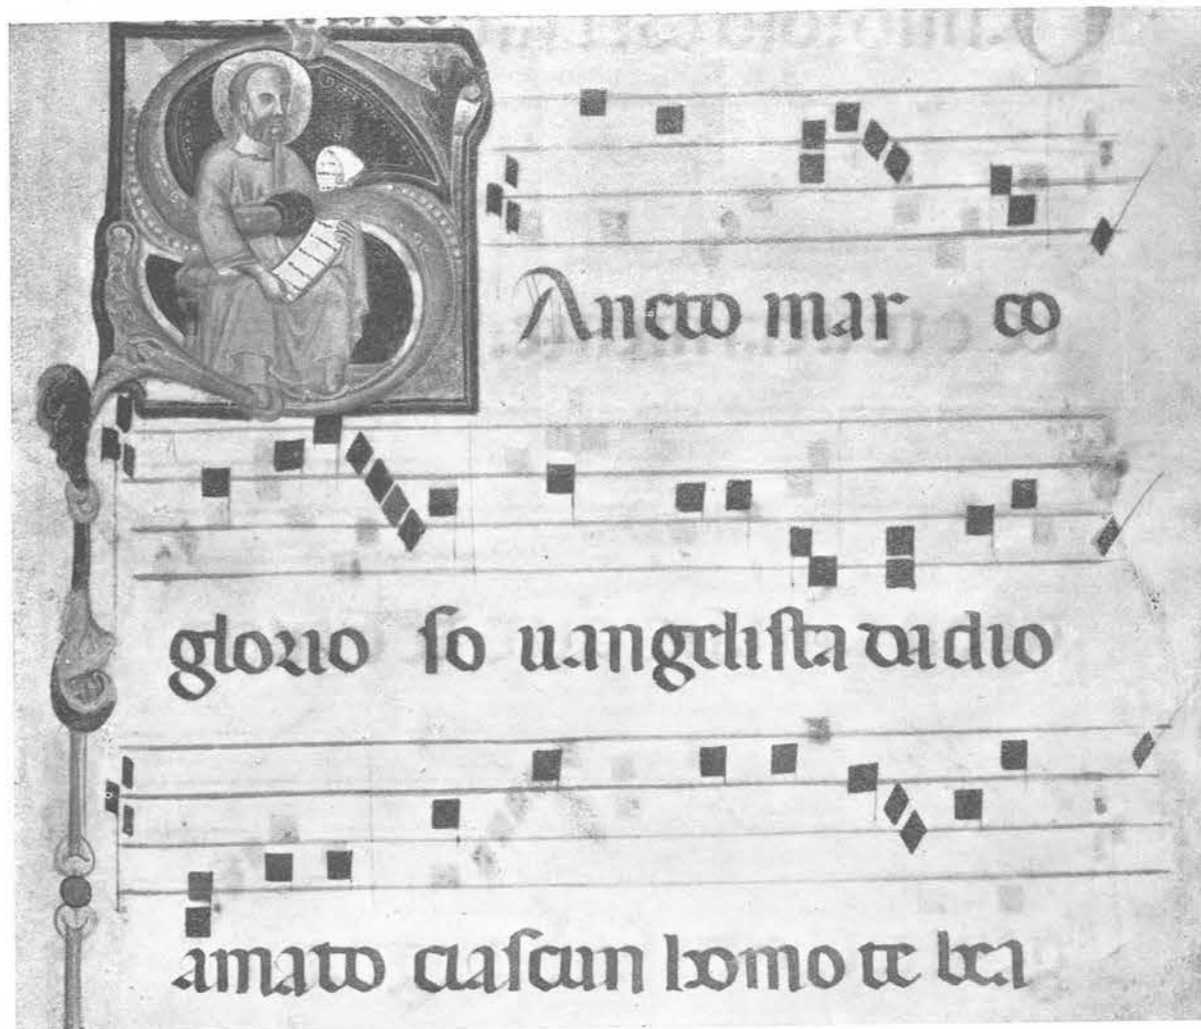 SAncto mar co
glorio so uangelista dadio
amato ciascun homo te bea